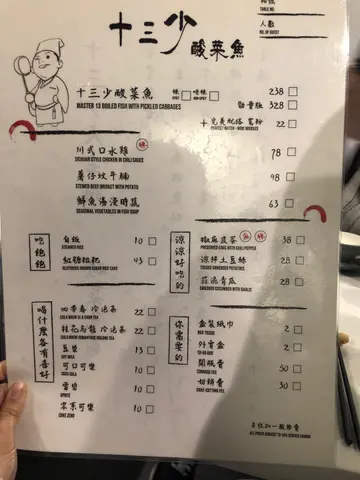 TABLE NO.
人數
NO. OF GUEST
十三少
酸菜魚
十三少酸菜魚 辣 唔辣 238
MASTER 13 BOILED FISH WITH PICKLED CABBAGES SPICY NON-SPICY
加量版 328
+ 完美配搭 寬粉 22
PERFECT MATCH - WIDE NOODLES
川式口水雞 辣 78
SICHUAN STYLE CHICKEN IN CHILI SAUCE
薯仔炆牛腩 98
STEWED BEEF BRISKET WITH POTATO
鮮魚湯浸時蔬 63
SEASONAL VEGETABLES IN FISH SOUP
吃飽飽
白飯 10
STEAMED RICE
紅糖糍粑 43
GLUTINOUS BROWN SUGAR RICE CAKE
涼涼好吃的
椒麻皮蛋 麻 辣 38
PRESERVED EGGS WITH CHILI PEPPER
涼拌土豆絲 28
TOSSED SHREDDED POTATOES
蒜泥青瓜 28
CRUSHED CUCUMBER WITH GARLIC
喝什麼各有喜好
四季春 冷泡茶 22
桂花烏龍 冷泡茶 22
COLD BREW OSMANTHUS OOLONG TEA
豆漿 13
SOY MILK
可口可樂 10
COCA COLA
雪碧 10
SPRITE
零系可樂 10
COKE ZERO
你需要的
盒裝紙巾 2
BOX TISSUE
外賣盒 2
TO-GO BOX
開瓶費 50
CORKAGE FEE
切餅費 30
CAKE-CUTTING FEE
另收加一服務費
ALL PRICES SUBJECT TO 10% SERVICE CHARGE